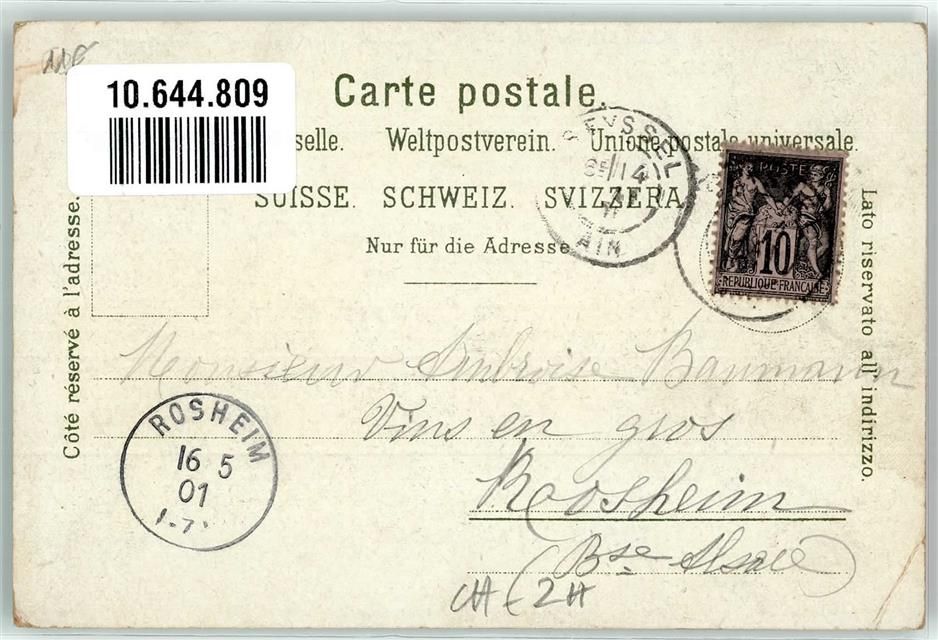 10.644.809
Carte postale.
selle. Weltpostverein. Unione postale universale.
SUISSE. SCHWEIZ. SVIZZERA.
Nur für die Adresse
Côté réservé à l'adresse.
Lato riservato all' indirizzo.
SEYSSEL
14
AIN
POSTES
10
REPUBLIQUE FRANÇAISE
Monsieur Ambroise Baumann
Vins en gros
Roosheim
(Bse Alsace)
ROSHEIM
16 5
01
CH - 2H